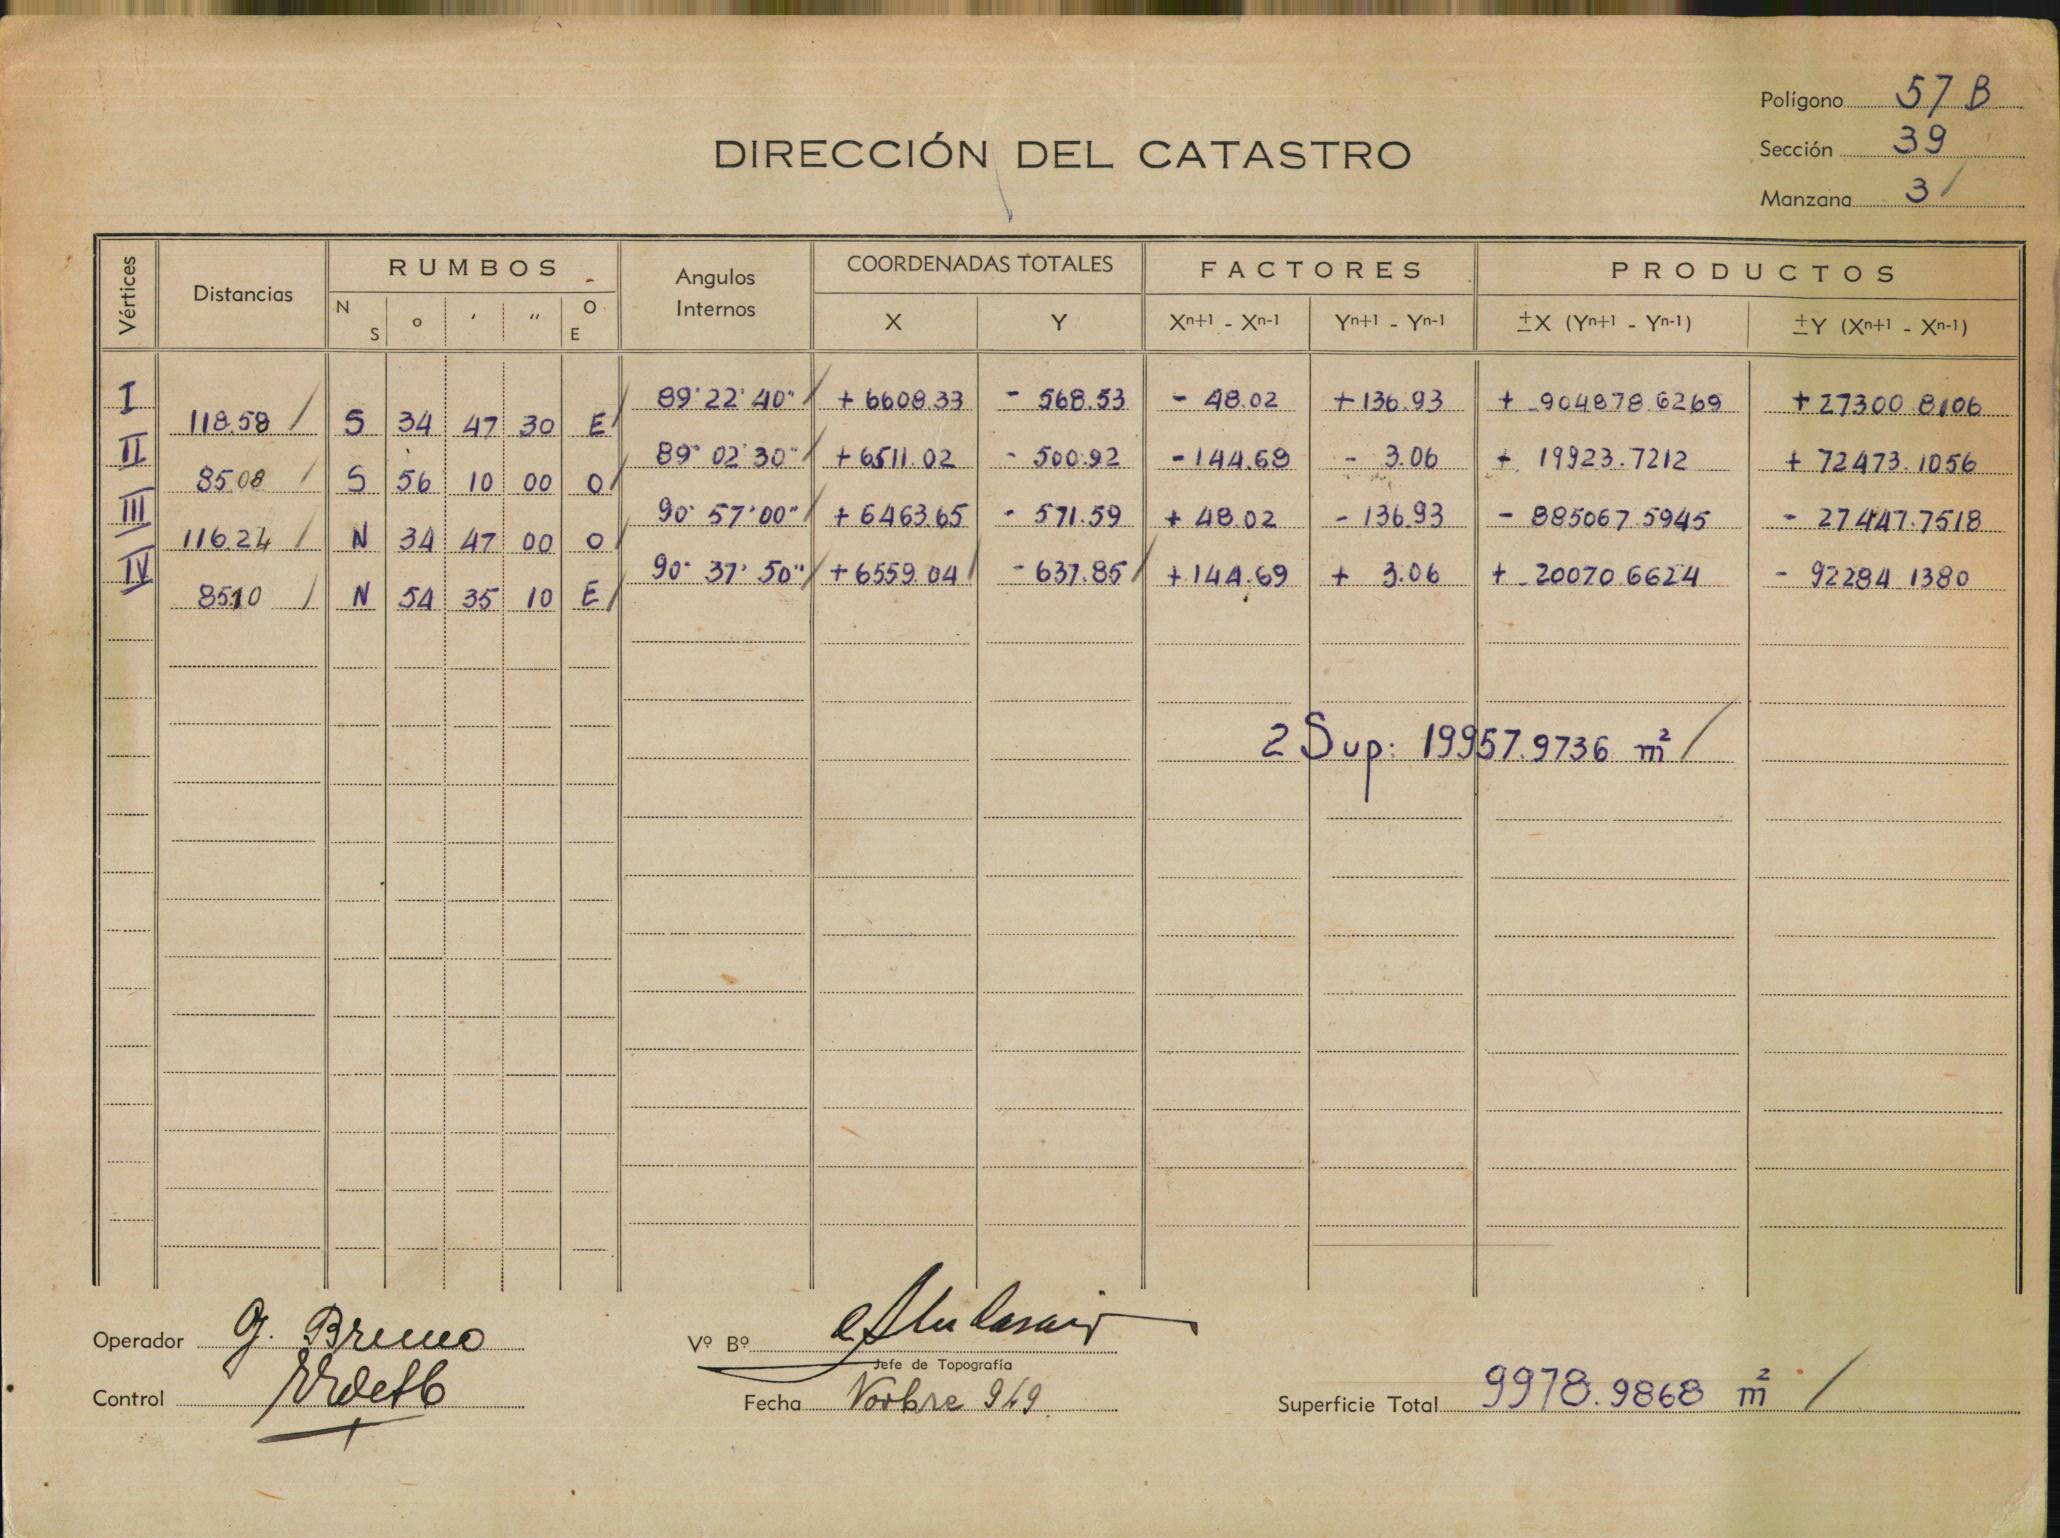 Polígono 57 B
DIRECCIÓN DEL CATASTRO
Sección 39
Manzana 3
Vértices Distancias RUMBOS Angulos Internos COORDENADAS TOTALES FACTORES PRODUCTOS
N S o ' '' O E X Y Xn+1 - Xn-1 Yn+1 - Yn-1 ±X (Yn+1 - Yn-1) ±Y (Xn+1 - Xn-1)
I 89° 22' 40" + 6608.33 - 568.53 - 48.02 + 136.93 + 904878.6269 + 27300.8106
118.58 S 34 47 30 E
II 89° 02' 30" + 6511.02 - 500.92 - 144.69 - 3.06 + 19923.7212 + 72473.1056
85.08 S 56 10 00 O
III 90° 57' 00" + 6463.65 - 571.59 + 48.02 - 136.93 - 885067.5945 - 27447.7518
116.24 N 34 47 00 O
IV 90° 37' 50" + 6559.04 - 637.85 + 144.69 + 3.06 + 20070.6624 - 92284.1380
85.10 N 54 35 10 E
2 Sup: 19957.9736 m²
Operador G. Bruno
Vº Bº
Jefe de Topografía
Control
Fecha Novbre 949
Superficie Total 9978.9868 m²